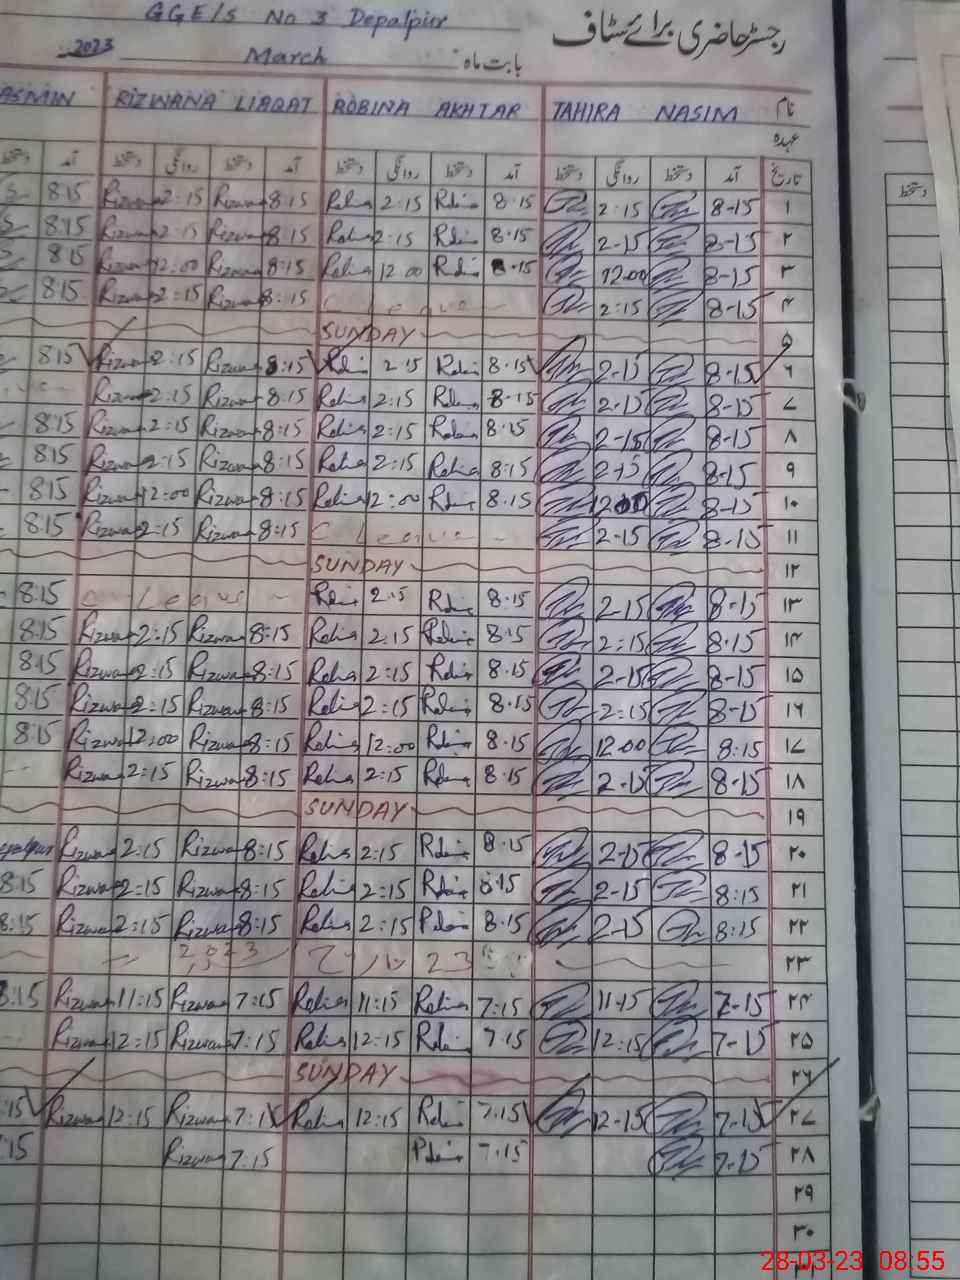 GGE/S No 3 Depalpur
رجسٹر حاضری برائے سٹاف
2023 March بابت ماہ
ASMIN RIZWANA LIAQAT ROBINA AKHTAR TAHIRA NASIM نام
عہدہ
دستخط آمد دستخط روانگی دستخط آمد دستخط روانگی دستخط آمد دستخط روانگی دستخط آمد تاریخ
8:15 Rizwana 2:15 Rizwana 8:15 2:15 8.15 2:15 8-15 ۱
8:15 Rizwana 2:15 Rizwana 8:15 2:15 8.15 2-15 8-15 ۲
8:15 Rizwana 12:00 Rizwana 8:15 12:00 8.15 12:00 8-15 ۳
8:15 Rizwana 2:15 Rizwana 8:15 C Leave 2:15 8-15 ۴
SUNDAY ۵
8:15 Rizwana 2:15 Rizwana 8:15 2:15 8.15 2-15 8-15 ۶
Rizwana 2:15 Rizwana 8:15 2:15 8-15 2-15 8-15 ۷
8:15 Rizwana 2:15 Rizwana 8:15 2:15 8.15 2-15 8-15 ۸
8:15 Rizwana 2:15 Rizwana 8:15 2:15 8:15 2-15 8-15 ۹
8:15 Rizwana 12:00 Rizwana 8:15 12:00 8.15 12:00 8-15 ۱۰
8:15 Rizwana 2:15 Rizwana 8:15 C Leave 2-15 8-15 ۱۱
SUNDAY ۱۲
8:15 Leave 2:15 8:15 2-15 8-15 ۱۳
8:15 Rizwana 2:15 Rizwana 8:15 2:15 8:15 2:15 8.15 ۱۴
8:15 Rizwana 2:15 Rizwana 8:15 2:15 8.15 2-15 8-15 ۱۵
8:15 Rizwana 2:15 Rizwana 8:15 2:15 8.15 2:15 8-15 ۱۶
8:15 Rizwana 12:00 Rizwana 8:15 12:00 8.15 12.00 8:15 ۱۷
Rizwana 2:15 Rizwana 8:15 2:15 8.15 2-15 8-15 ۱۸
SUNDAY ۱۹
Depalpur Rizwana 2:15 Rizwana 8:15 2:15 8.15 2-15 8-15 ۲۰
8:15 Rizwana 2:15 Rizwana 8:15 2:15 8.15 2-15 8:15 ۲۱
8:15 Rizwana 2:15 Rizwana 8:15 2:15 8.15 2-15 8:15 ۲۲
2023 مارچ 23 ۲۳
8:15 Rizwana 11:15 Rizwana 7:15 11:15 7:15 11-15 7-15 ۲۴
Rizwana 12:15 Rizwana 7:15 12:15 7.15 12:15 7-15 ۲۵
SUNDAY ۲۶
:15 Rizwana 12:15 Rizwana 7:15 12:15 7.15 12-15 7-15 ۲۷
:15 Rizwana 7:15 7.15 7-15 ۲۸
۲۹
۳۰
دستخط
28-03-23 08:55